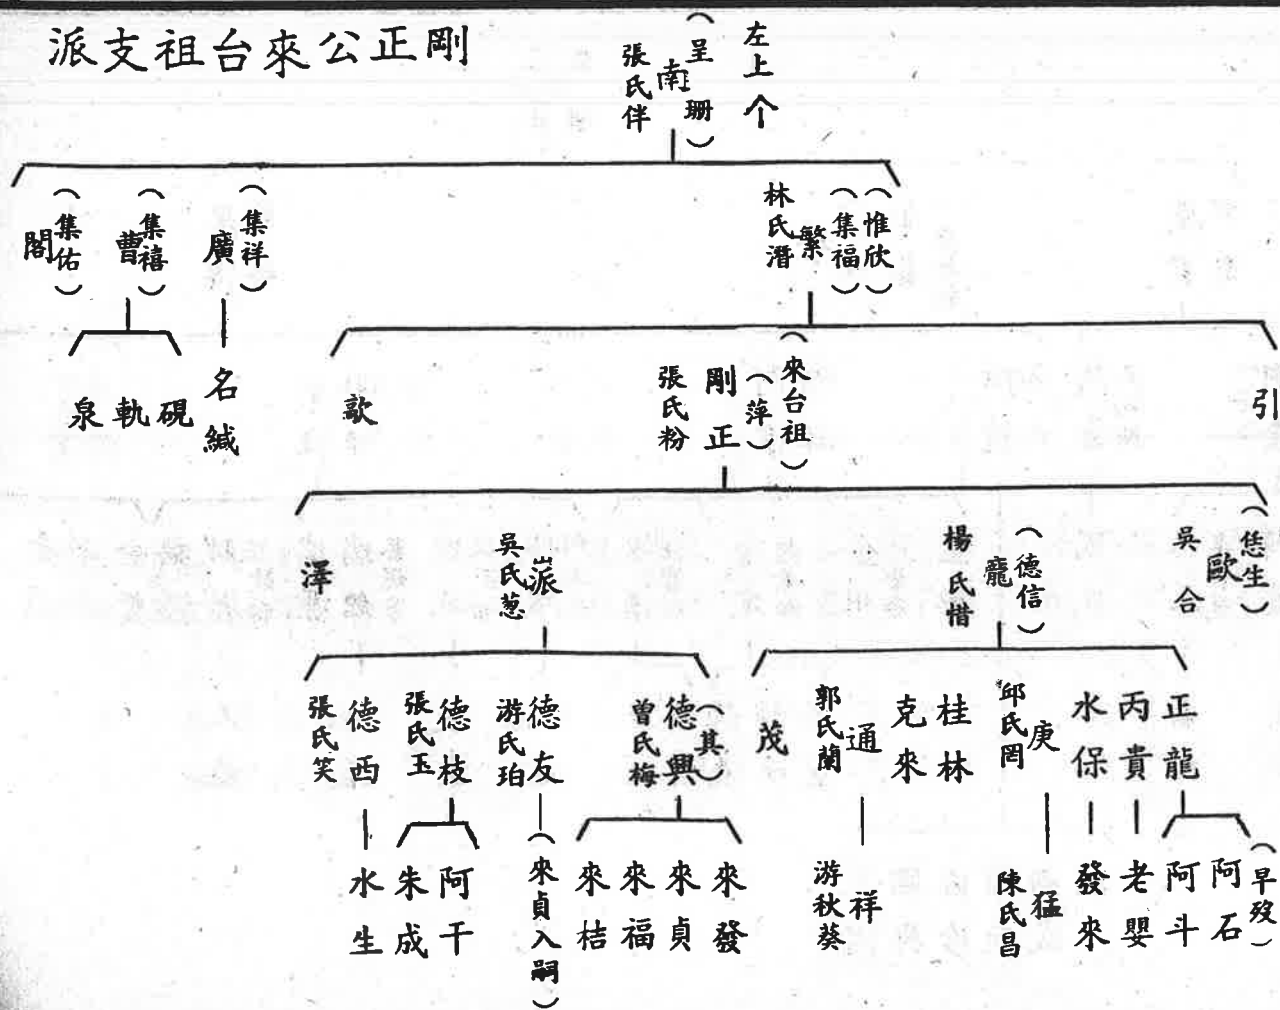 派支祖台來公正剛
左上个
(呈珊)
南
張氏伴
(惟欣)
(集福)
繁
林氏潛
(集祥)
廣
(集禧)
曹
(集佑)
閣
引
(來台祖)
(萍)
剛正
張氏粉
歆
名緘
硯
軌
泉
(恁生)
歐
吳合
(德信)
龐
楊氏惜
派
吳氏葱
澤
正龍
丙貴
水保
庚
邱氏罔
桂林
克來
通
郭氏蘭
茂
(其)
德興
曾氏梅
德友
游氏珀
德枝
張氏玉
德西
張氏笑
(早歿)
阿石
阿斗
老嬰
發來
猛
陳氏昌
祥
游秋葵
來發
來貞
來福
來桔
(來貞入嗣)
阿干
朱成
水生